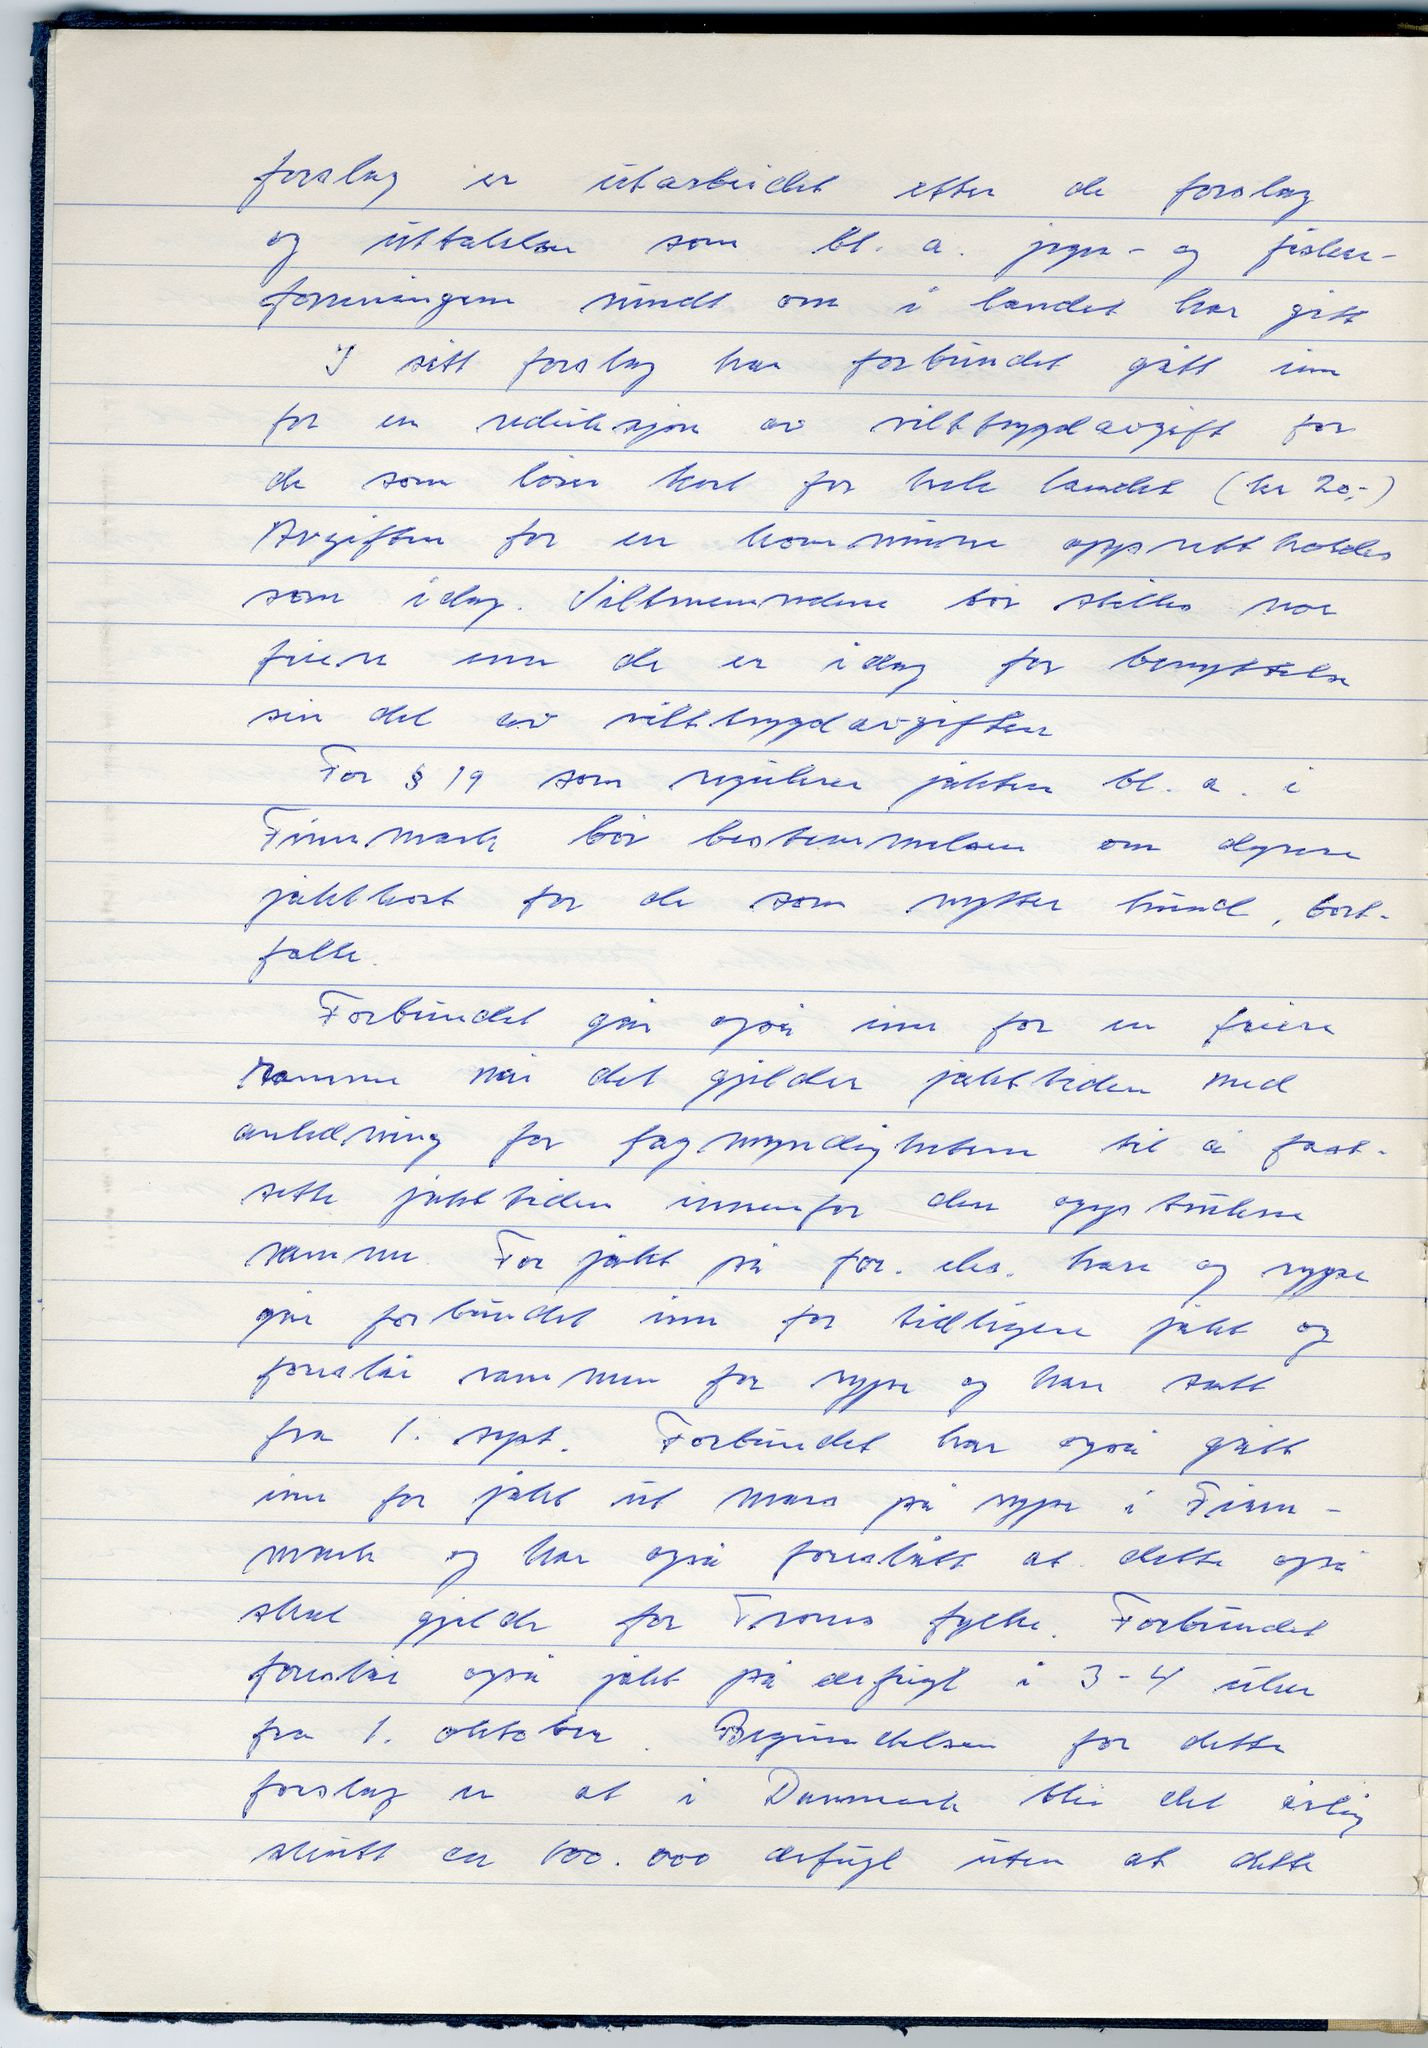 forslag er utarbeidet etter de forslag
og uttalelser som bl. a. jeger- og fisker-
foreningene rundt om i landet har gitt
I sitt forslag har forbundet gått inn
for en reduksjon av vilttrygdavgift for
de som løser kort for hele landet (kr 20,-)
Avgiften for en kommune opprettholdes
som idag. Viltnemndene bør stilles noe
friere enn de er idag for benyttelse
sin del av vilttrygdavgiften
For § 19 som regulerer jakten bl. a. i
Finnmark bør bestemmelsen om dyrere
jaktkort for de som nytter hund, bort-
falle.
Forbundet går også inn for en friere
ramme når det gjelder jakttiden med
anledning for fagmyndighetene til å fast-
sette jakttiden innenfor den opptrukne
ramme. For jakt på for. eks. hare og rype
går forbundet inn for tidligere jakt og
foreslår rammen for rype og hare satt
fra 1. sept. Forbundet har også gått
inn for jakt ut mars på rype i Finn-
mark og har også foreslått at dette også
skal gjelde for Troms fylke. Forbundet
foreslår også jakt på ærfugl i 3-4 uker
fra 1. oktober. Begrundelsen for dette
forslag er at i Danmark blir det årlig
skutt ca 100.000 ærfugl uten at dette